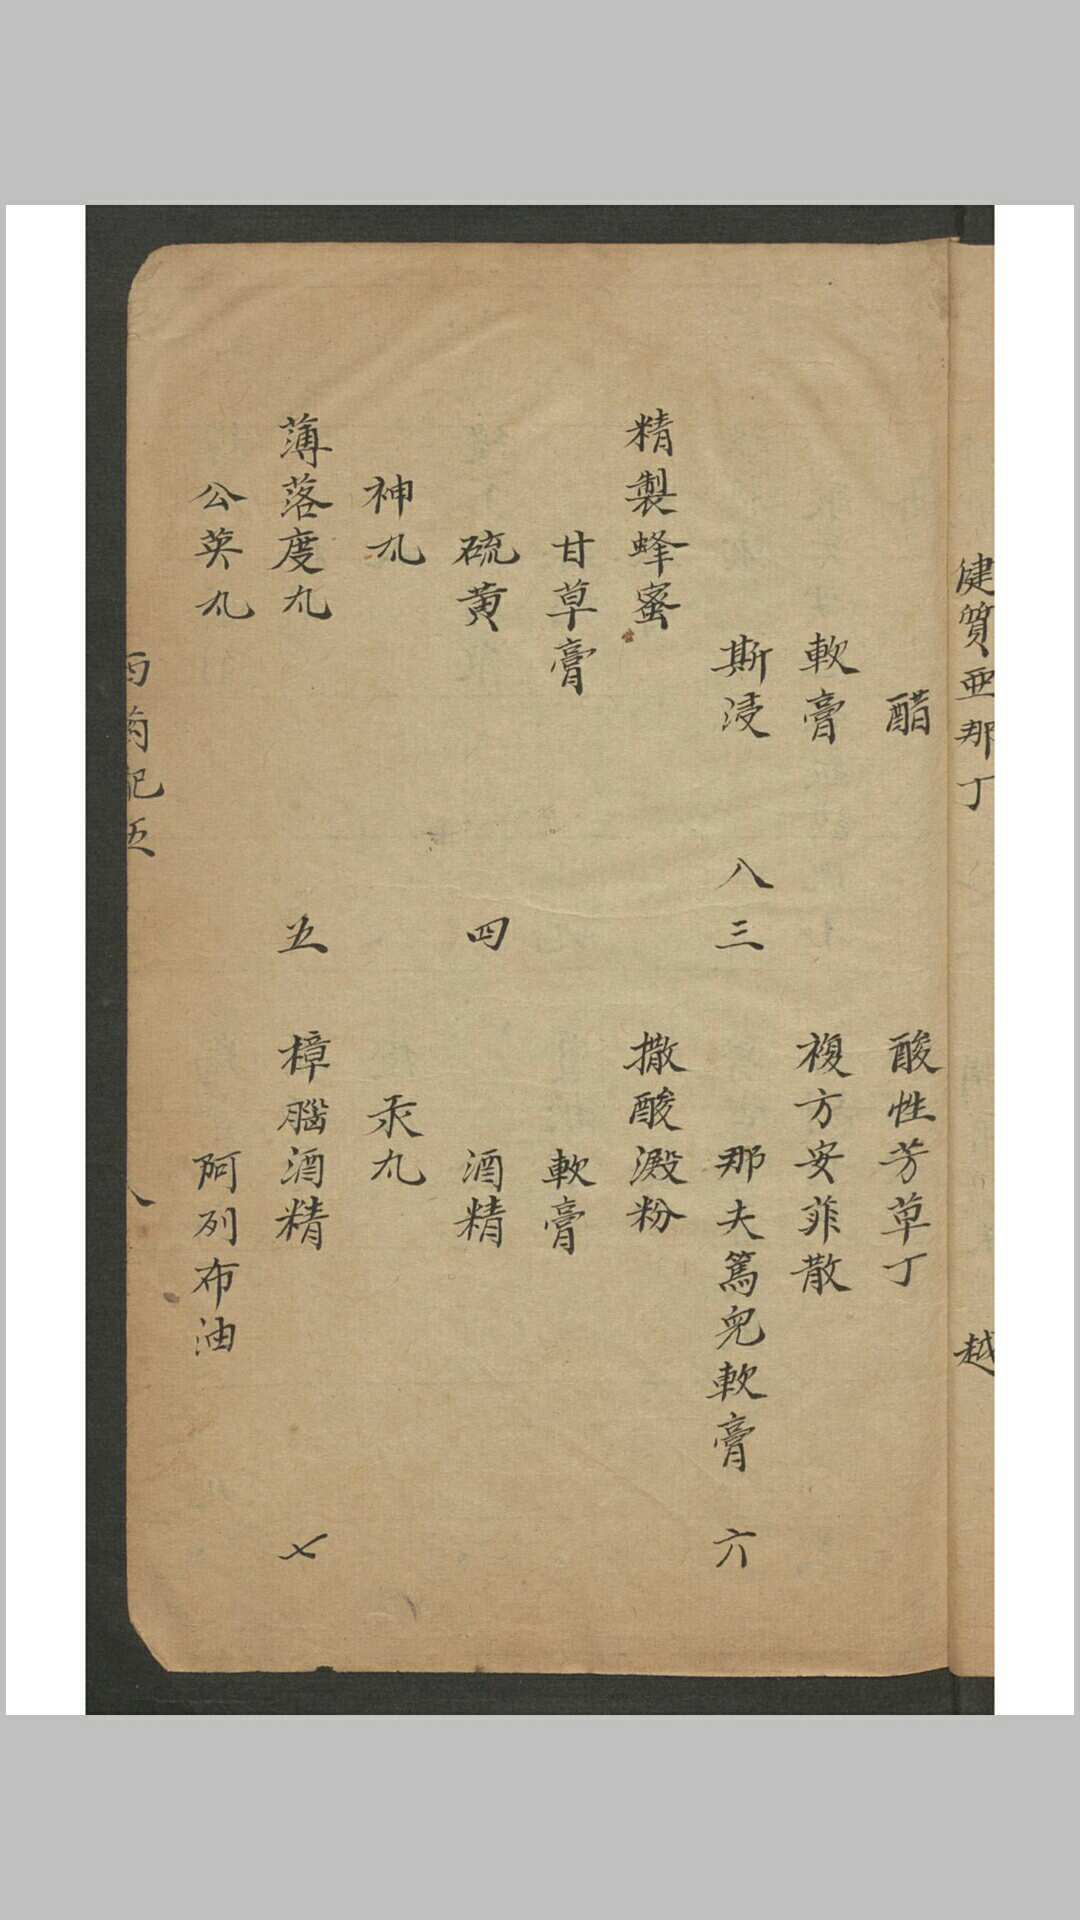 健質亜那丁 越
醋 酸性芳草丁
軟膏 複方安菲散
斯浸 八三 那夫篤兒軟膏 六
精製蜂蜜 撒酸澱粉
甘草膏 軟膏
硫黄 四 酒精
神丸 汞丸
薄落度丸 五 樟腦酒精 七
公英丸 阿列布油